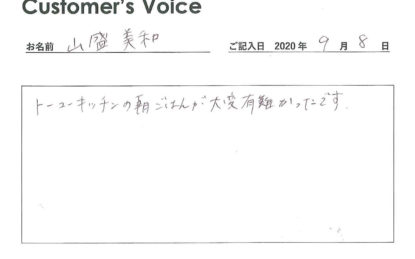 Customer's Voice
お名前 山盛 美和 ご記入日 2020 年 9 月 8 日
トーコーキッチンの朝ごはんが大変有難かったです。